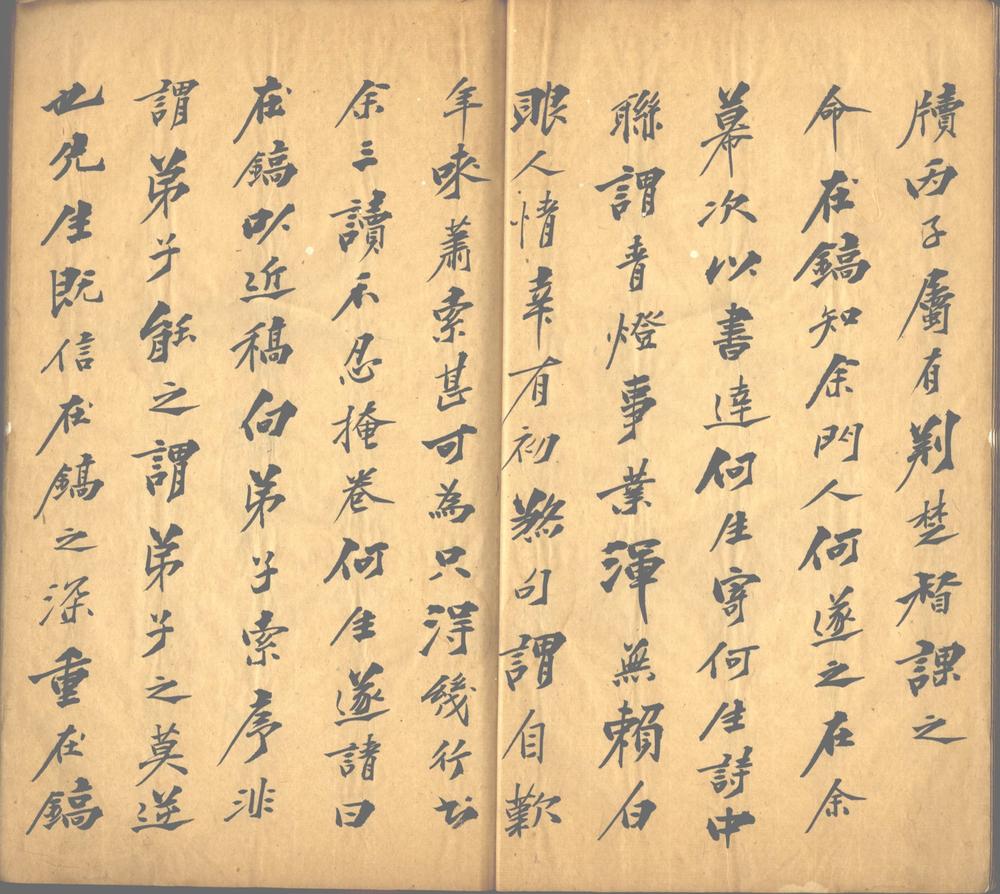 牘西子屬有荆楚督課之
命在鎬知余門人何遂之在余
幕次以書達何生寄何生詩中
聯謂青燈事業渾無賴白
眼人情幸有初煞句謂自歎
年來蕭索甚可為只得幾行書
余三讀不忍掩卷何生遂請曰
在鎬以近稿向弟子索序非
謂弟子能之謂弟子之莫逆
也先生既信在鎬之深重在鎬